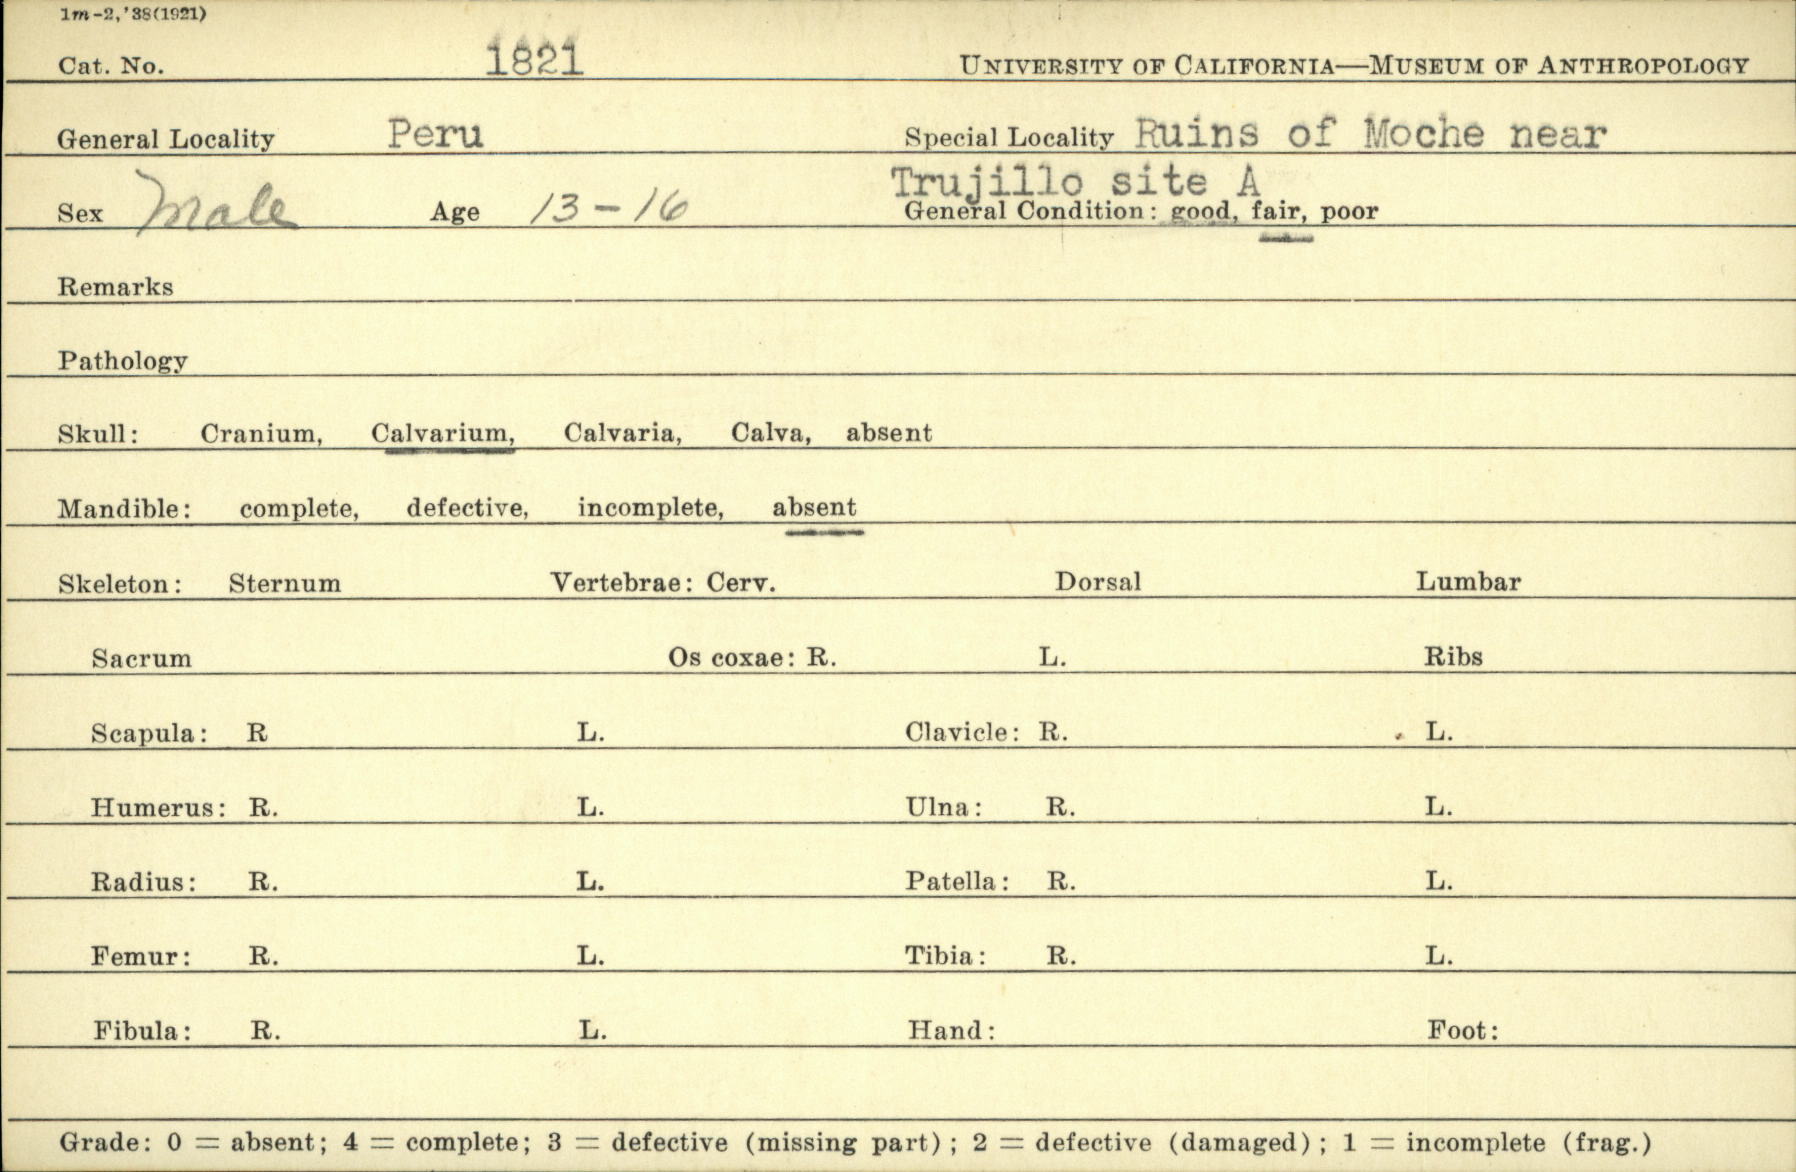 1m-2,'38(1921)
Cat. No. 1821 UNIVERSITY OF CALIFORNIA—MUSEUM OF ANTHROPOLOGY
General Locality Peru Special Locality Ruins of Moche near
Trujillo site A
Sex Male Age 13-16 General Condition: good, fair, poor
Remarks
Pathology
Skull: Cranium, Calvarium, Calvaria, Calva, absent
Mandible: complete, defective, incomplete, absent
Skeleton: Sternum Vertebrae: Cerv. Dorsal Lumbar
Sacrum Os coxae: R. L. Ribs
Scapula: R L. Clavicle: R. L.
Humerus: R. L. Ulna: R. L.
Radius: R. L. Patella: R. L.
Femur: R. L. Tibia: R. L.
Fibula: R. L. Hand: Foot:
Grade: 0 = absent; 4 = complete; 3 = defective (missing part); 2 = defective (damaged); 1 = incomplete (frag.)